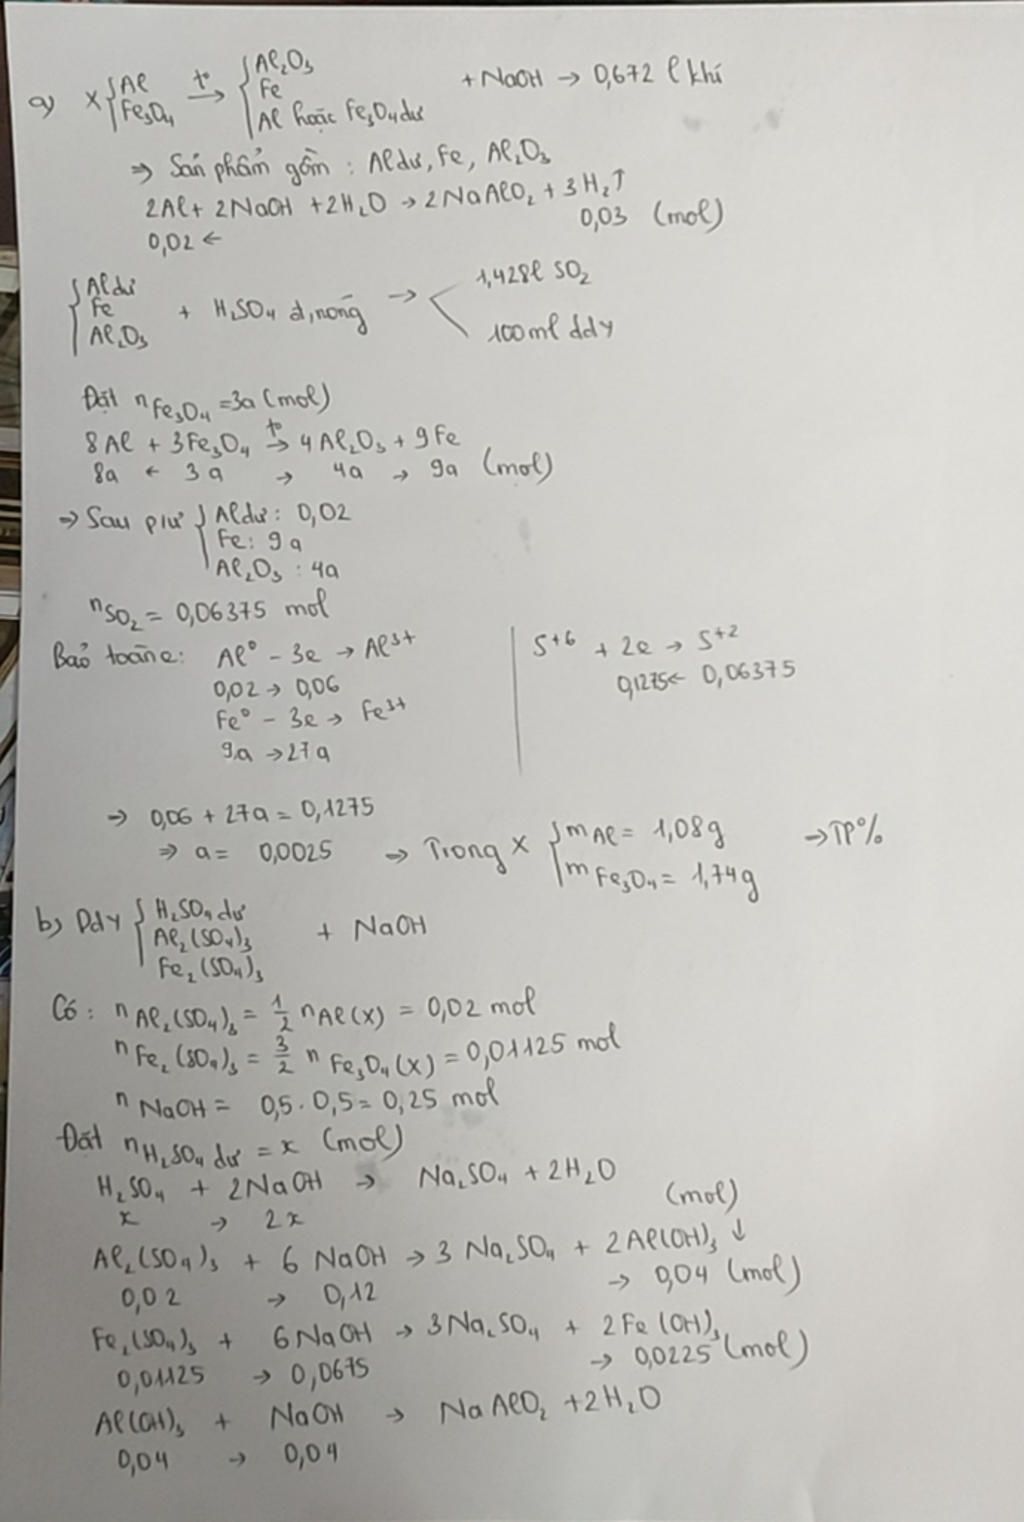 a) X { Al Fe₃O₄ →(t°) { Al₂O₃ Fe Al hoặc Fe₃O₄ dư + NaOH → 0,672 l khí
⇒ Sản phẩm gồm : Al dư, Fe, Al₂O₃
2Al + 2NaOH + 2H₂O → 2NaAlO₂ + 3H₂↑
0,02 ← 0,03 (mol)
{ Al dư Fe Al₂O₃ + H₂SO₄ đ, nóng → < 1,428l SO₂ 100ml ddY
Đặt n Fe₃O₄ = 3a (mol)
8Al + 3Fe₃O₄ →(t°) 4Al₂O₃ + 9Fe
8a ← 3a → 4a → 9a (mol)
⇒ Sau pư { Al dư : 0,02
Fe : 9a
Al₂O₃ : 4a
n SO₂ = 0,06375 mol
Bảo toàn e: Al⁰ - 3e → Al³⁺ | S⁺⁶ + 2e → S⁺²
0,02 → 0,06 | 0,1275 ← 0,06375
Fe⁰ - 3e → Fe³⁺
9a → 27a
→ 0,06 + 27a = 0,1275
⇒ a = 0,0025 → Trong X { m Al = 1,08g m Fe₃O₄ = 1,74g → TP%
b) DdY { H₂SO₄ dư Al₂(SO₄)₃ Fe₂(SO₄)₃ + NaOH
Có : n Al₂(SO₄)₃ = 1/2 n Al(X) = 0,02 mol
n Fe₂(SO₄)₃ = 3/2 n Fe₃O₄(X) = 0,01125 mol
n NaOH = 0,5 . 0,5 = 0,25 mol
Đặt n H₂SO₄ dư = x (mol)
H₂SO₄ + 2NaOH → Na₂SO₄ + 2H₂O
x → 2x (mol)
Al₂(SO₄)₃ + 6 NaOH → 3 Na₂SO₄ + 2Al(OH)₃ ↓
0,02 → 0,12 → 0,04 (mol)
Fe₂(SO₄)₃ + 6NaOH → 3Na₂SO₄ + 2Fe(OH)₃
0,01125 → 0,0675 → 0,0225 (mol)
Al(OH)₃ + NaOH → NaAlO₂ + 2H₂O
0,04 → 0,04